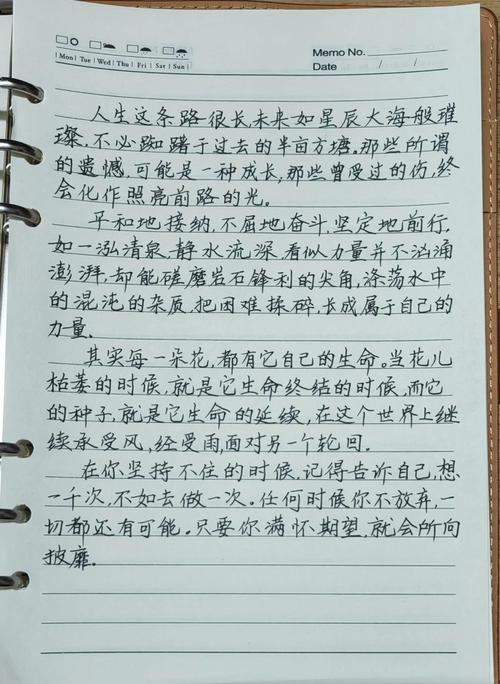 Memo No.
Mon Tue Wed Thu Fri Sat Sun
Date / /
人生这条路很长,未来如星辰大海般璀
璨,不必踟蹰于过去的半亩方塘。那些所谓
的遗憾,可能是一种成长;那些曾受过的伤,终
会化作照亮前路的光。
平和地接纳,不屈地奋斗,坚定地前行,
如一泓清泉,静水流深,看似力量并不汹涌
澎湃,却能磋磨岩石锋利的尖角,涤荡水中
的混沌的杂质,把困难揉碎,长成属于自己的
力量.
其实每一朵花,都有它自己的生命。当花儿
枯萎的时候,就是它生命终结的时候,而它
的种子,就是它生命的延续,在这个世界上继
续承受风,经受雨,面对另一个轮回.
在你坚持不住的时候,记得告诉自己,想
一千次,不如去做一次。任何时候你不放弃,一
切都还有可能。只要你满怀期望,就会所向
披靡.